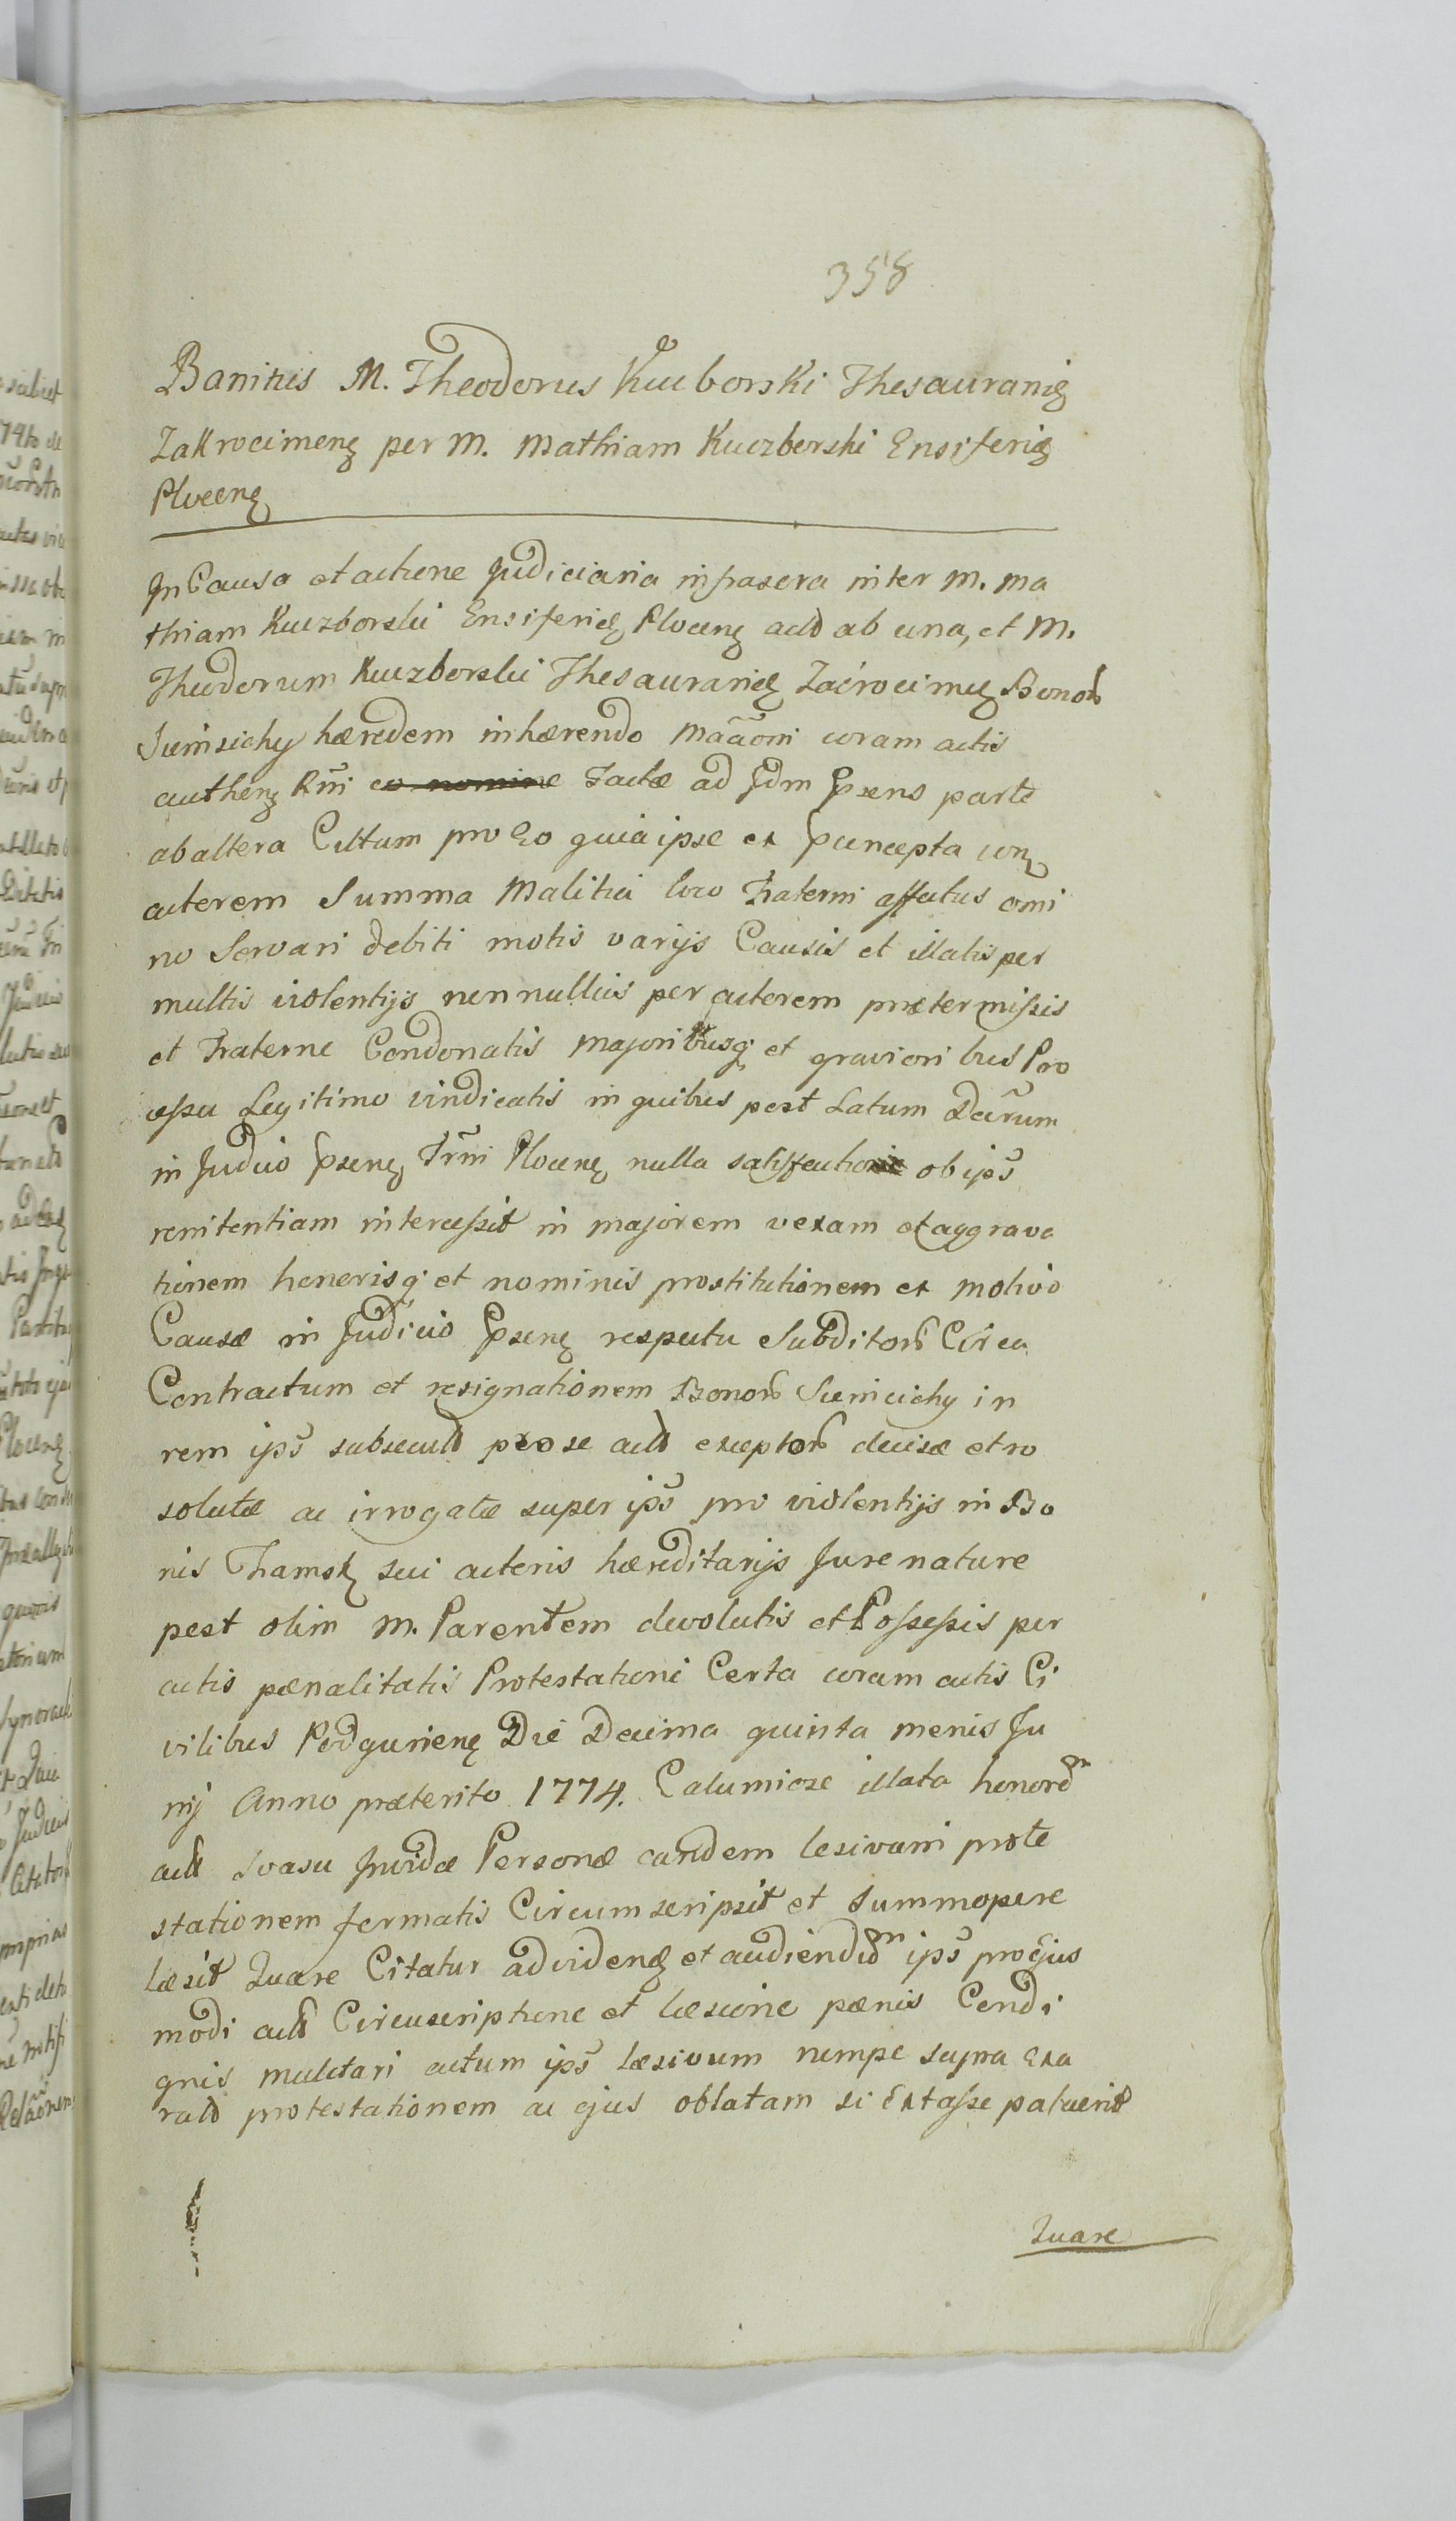 358
Banitus M. Theodorus Kuczborski Thesaurarię
Zakrocimenę per M. Mathiam Kuczborski Ensiferię
Plocenę
In Causa et actione Judiciaria infrascra inter M. Ma
thiam Kuczborski Ensiferię Plocenę actt ab una, et M.
Theodorum Kuczborski Thesaurarię Zacrocimę Bonor
hæredem inhærendo Mãaõni coram actis
authenę Rñi eo nomine Factæ ad Jdm Ipsens parte
ab altera Cittum pro Eo quia ipse ex concepta conę
actorem Summa Malitia loco Fraterni affectus omi
no Servari debiti motis varijs Causis et illatis per
multis violentijs nonnullius per actorem prætermissis
et Fraterne Condonatis Majoribusq et gravioribus Pro
cessu Legitimo vindicatis in quibus post Latum Decrum
in Judicio Ipsenę Trñi Plocenę nulla satisfactione ob ips
renitentiam intercessit in majorem vexam et aggrava
tionem honerisq et nominis prostitutionem ex motivo
Causæ in Judicio Ipsenę respectu Subditor Circa
Contractum et resignationem Bonor in
rem ips subsecutt pro se actt exceptor decisæ et ro
solutæ ac irrogatæ super ips pro violentijs in Bo
nis Thamsk sui actoris hæreditarijs Jure nature
post olim M. Parentem devolutis et Possessis per
actis pœnalitatis Protestationi Certa coram actis Ci
vilibus Podgurienę Die Decima quinta menis Ju
nij Anno præterito 1774. Calumiose illata honorem
actt Svasu Invidæ Personæ eandem lesivam prote
stationem formatis Circumscripsit et Summopere
læsit Quare Citatur ad videnę et audiendum ips pro ejus
modi actt Circuscriptione et læsione pœnis Condi
gnis mulctari actum ips læsivum nempe supra exa
ratt protestationem ac ejus oblatam si extasse patuerit
Quare